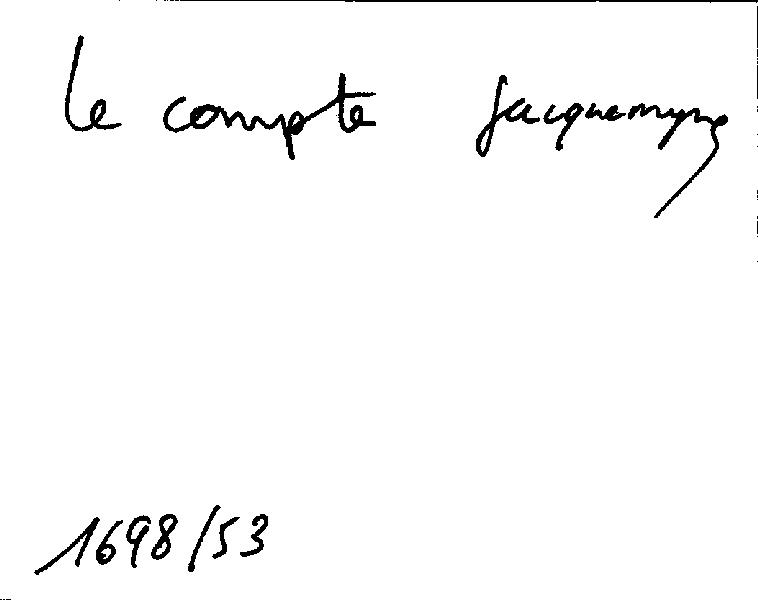 le compte Jacquemyns
1698/53